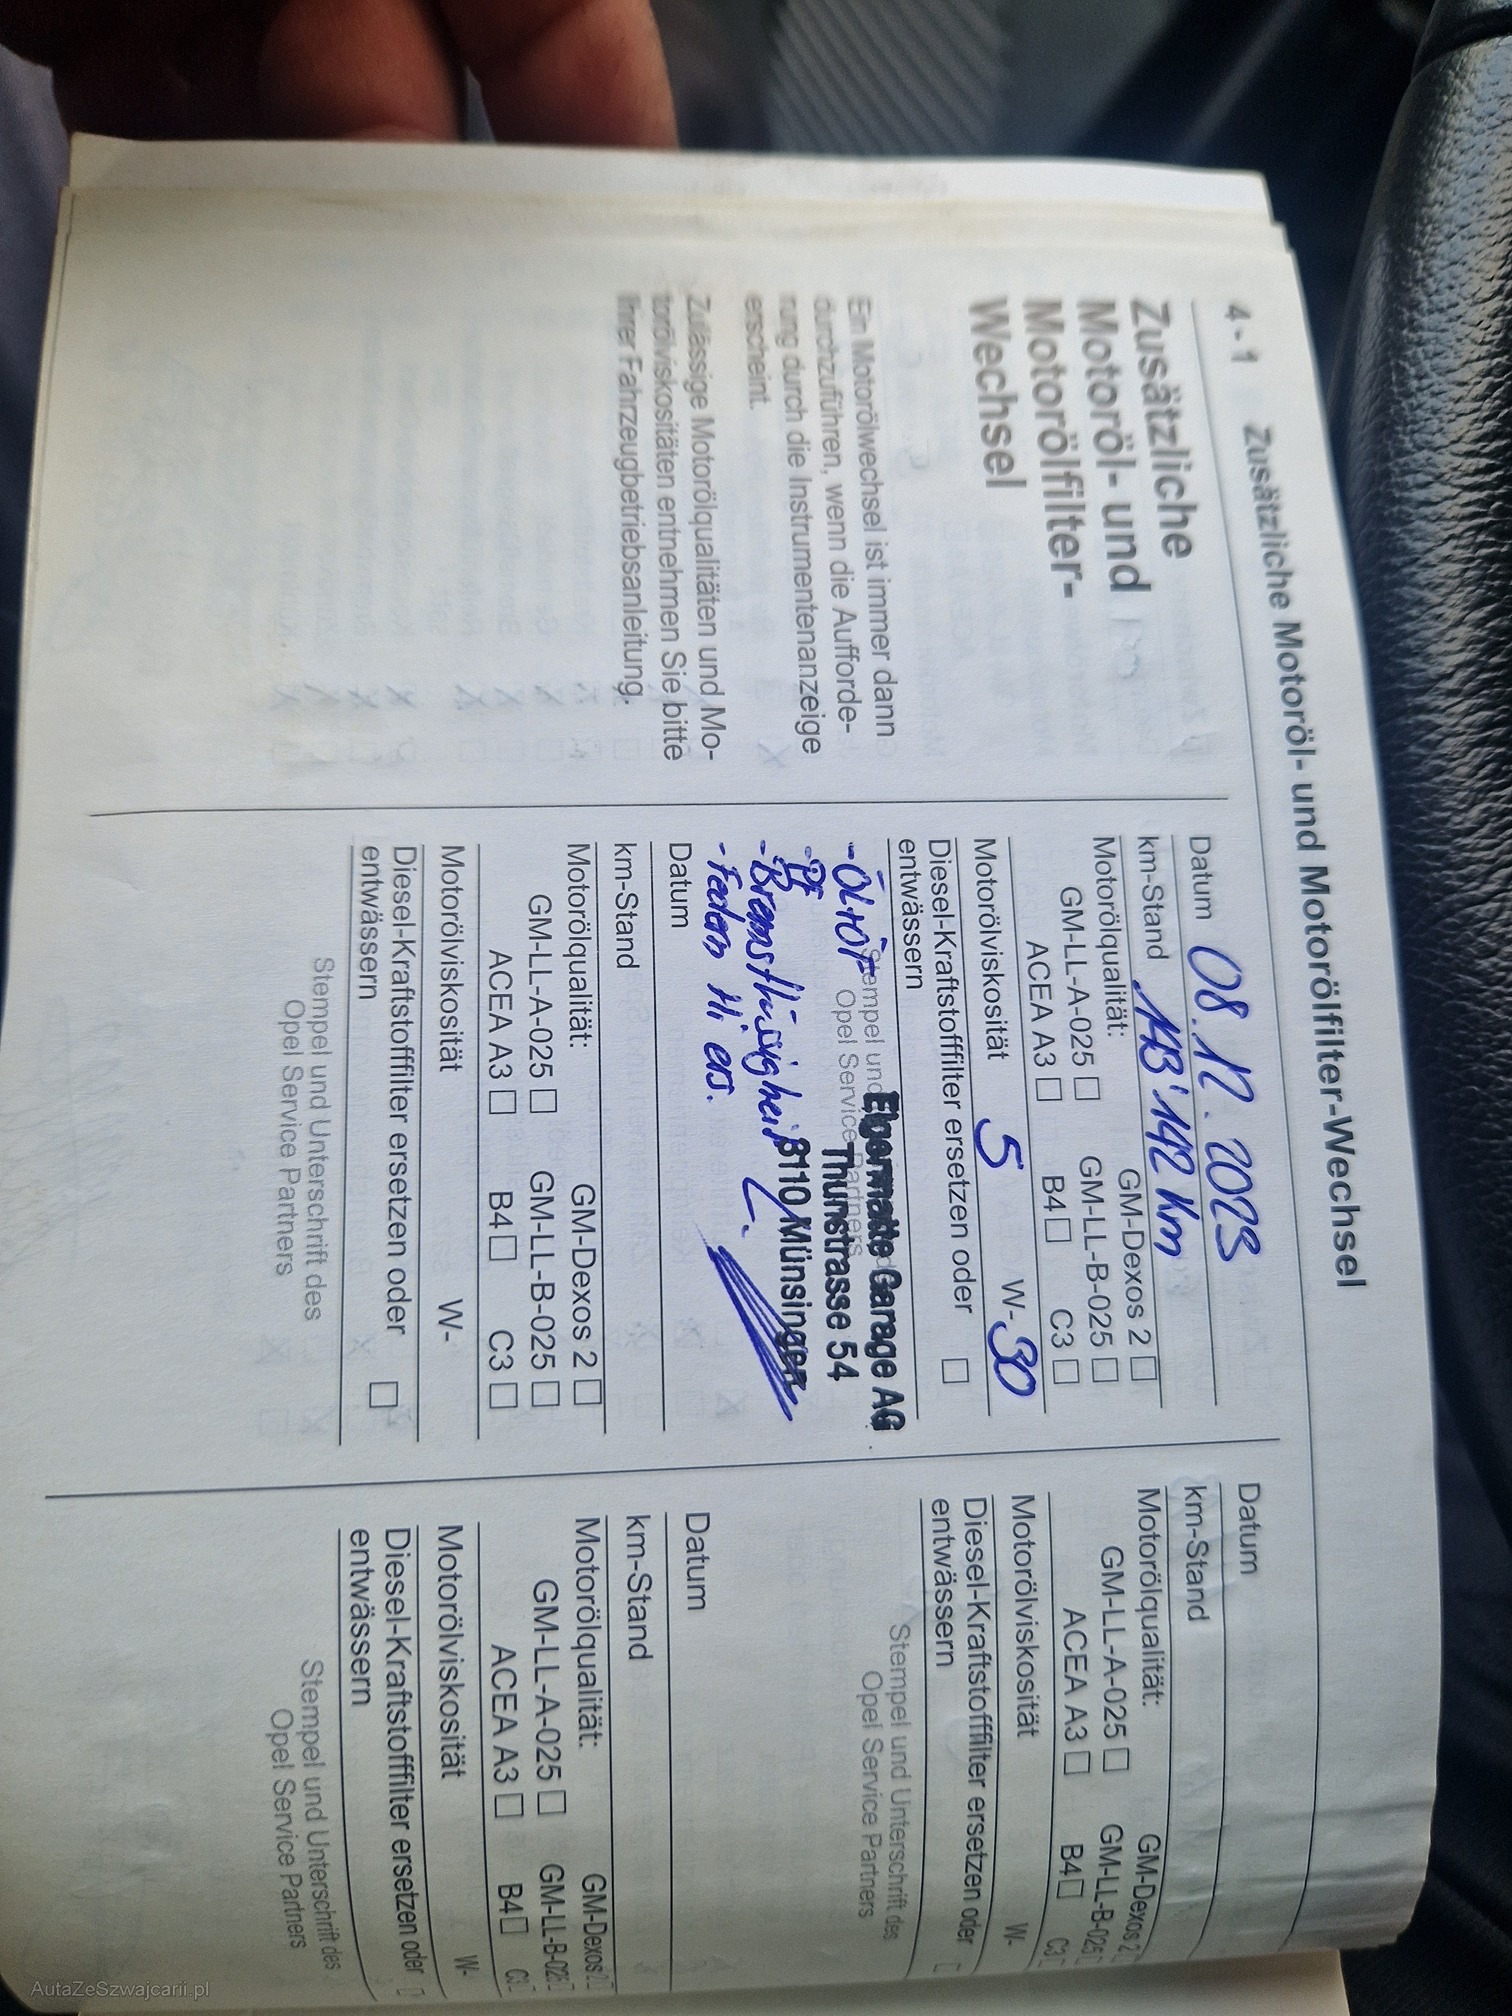 4 - 1 Zusätzliche Motoröl- und Motorölfilter-Wechsel
Zusätzliche
Motoröl- und
Motorölfilter-
Wechsel
Ein Motorölwechsel ist immer dann
durchzuführen, wenn die Aufforde-
rung durch die Instrumentenanzeige
erscheint.
Zulässige Motorölqualitäten und Mo-
torölviskositäten entnehmen Sie bitte
Ihrer Fahrzeugbetriebsanleitung.
Datum 08.12.2023
km-Stand 143'142 km
Motorölqualität: GM-Dexos 2
GM-LL-A-025 GM-LL-B-025
ACEA A3 B4 C3
Motorölviskosität 5 W-30
Diesel-Kraftstofffilter ersetzen oder
entwässern
Stempel und
Opel Service Partners
Eigermatte Garage AG
Thunstrasse 54
3110 Münsingen
- Öl+ÖF
- Bremsflüssigkeit
- Federn Hi ers.
Datum
km-Stand
Motorölqualität: GM-Dexos 2
GM-LL-A-025 GM-LL-B-025
ACEA A3 B4 C3
Motorölviskosität W-
Diesel-Kraftstofffilter ersetzen oder
entwässern
Stempel und Unterschrift des
Opel Service Partners
Datum
km-Stand
Motorölqualität: GM-Dexos 2
GM-LL-A-025 GM-LL-B-025
ACEA A3 B4 C3
Motorölviskosität W-
Diesel-Kraftstofffilter ersetzen oder
entwässern
Stempel und Unterschrift des
Opel Service Partners
Datum
km-Stand
Motorölqualität: GM-Dexos 2
GM-LL-A-025 GM-LL-B-025
ACEA A3 B4 C3
Motorölviskosität W-
Diesel-Kraftstofffilter ersetzen oder
entwässern
Stempel und Unterschrift des
Opel Service Partners
AutaZeSzwajcarii.pl